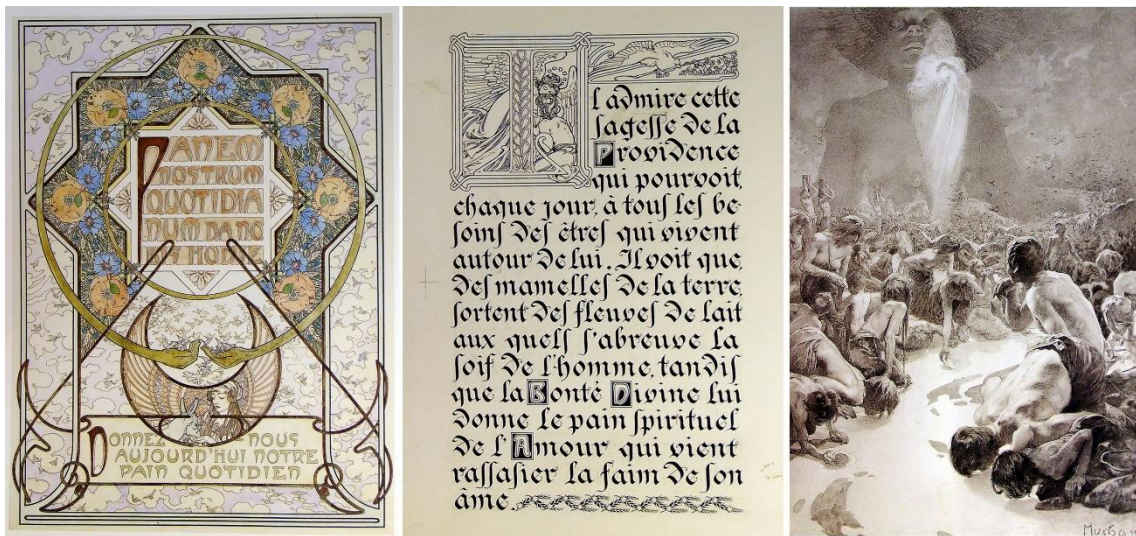 PANEM
NOSTRUM
QUOTIDIA
NUM DA NO
BIS HODIE
DONNEZ NOUS
AUJOURD'HUI NOTRE
PAIN QUOTIDIEN
Il admire cette
sagesse de la
Providence
qui pourvoit,
chaque jour, à tous les be-
soins des êtres qui vivent
autour de lui. Il voit que,
des mamelles de la terre,
sortent des fleuves de lait
aux quels s'abreuve la
soif de l'homme, tandis
que la Bonté Divine lui
donne le pain spirituel
de l'Amour qui vient
rassasier la faim de son
âme.
Mucha